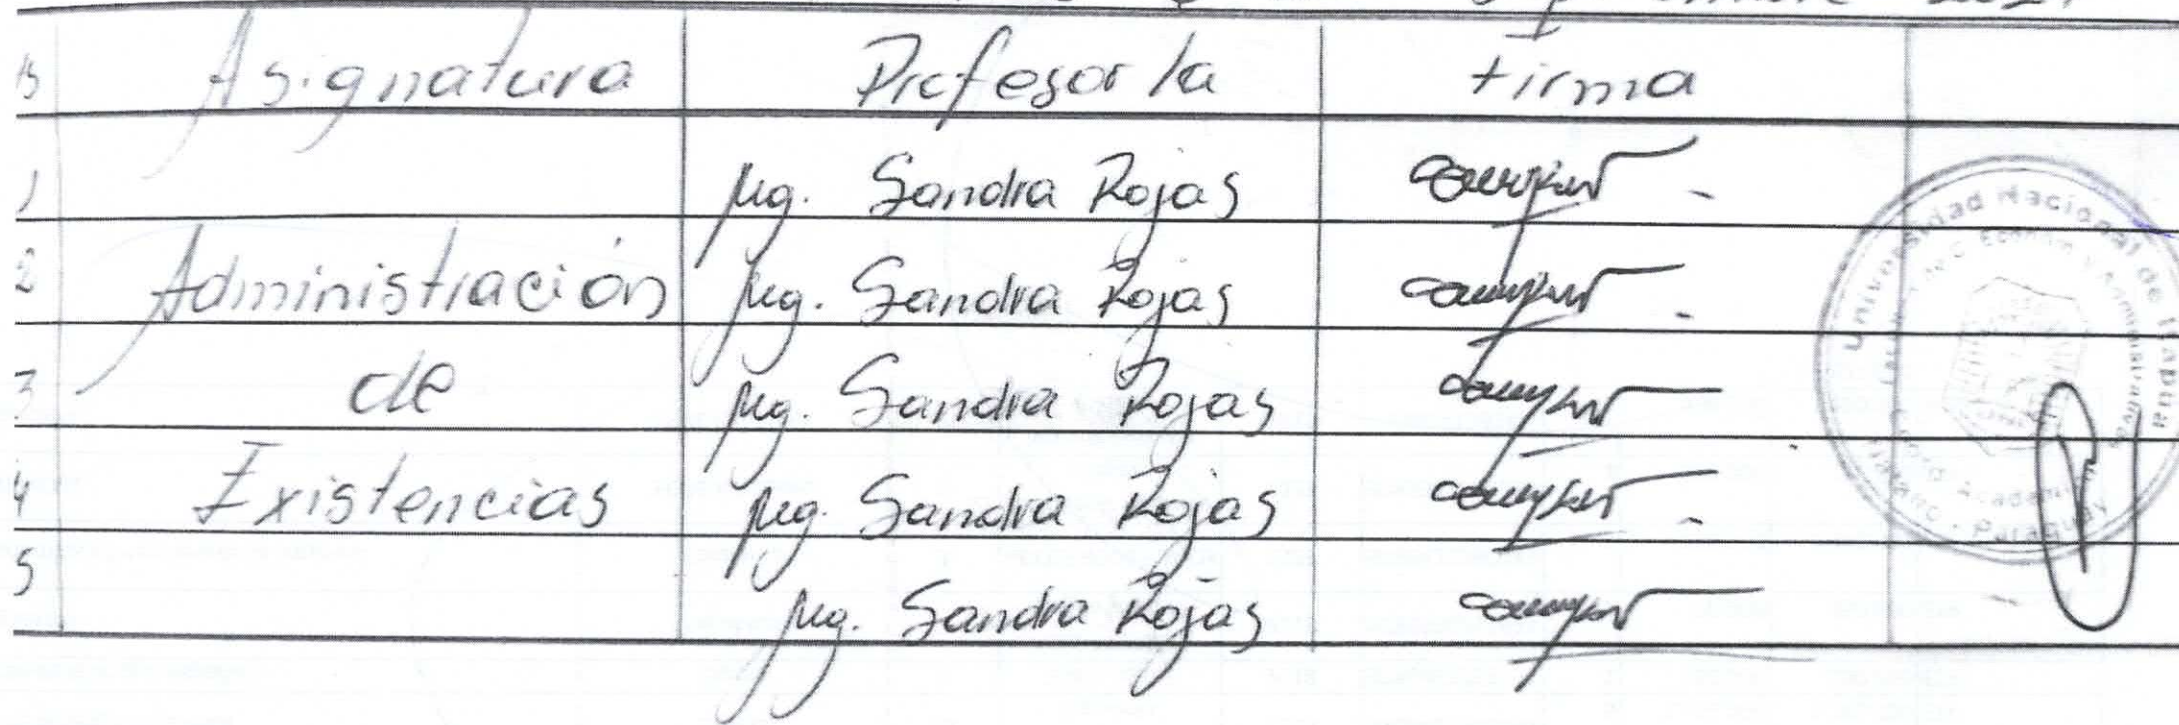 Asignatura Profesor/a Firma
1 Mg. Sandra Rojas
2 Administración Mg. Sandra Rojas
3 de Mg. Sandra Rojas
4 Existencias Mg. Sandra Rojas
5 Mg. Sandra Rojas
Universidad Nacional de Itapúa
Paraguay